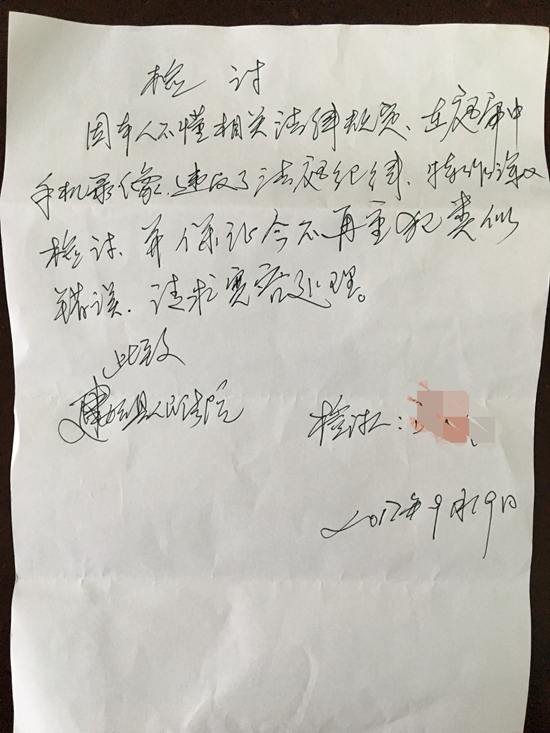 检讨
因本人不懂相关法律规定、在庭审中
手机录像,违反了法庭纪律,特作深刻
检讨、并保证今后不再重犯类似
错误,请求宽容处理。
此致
县人民法院
检讨人:
2017年9月19日